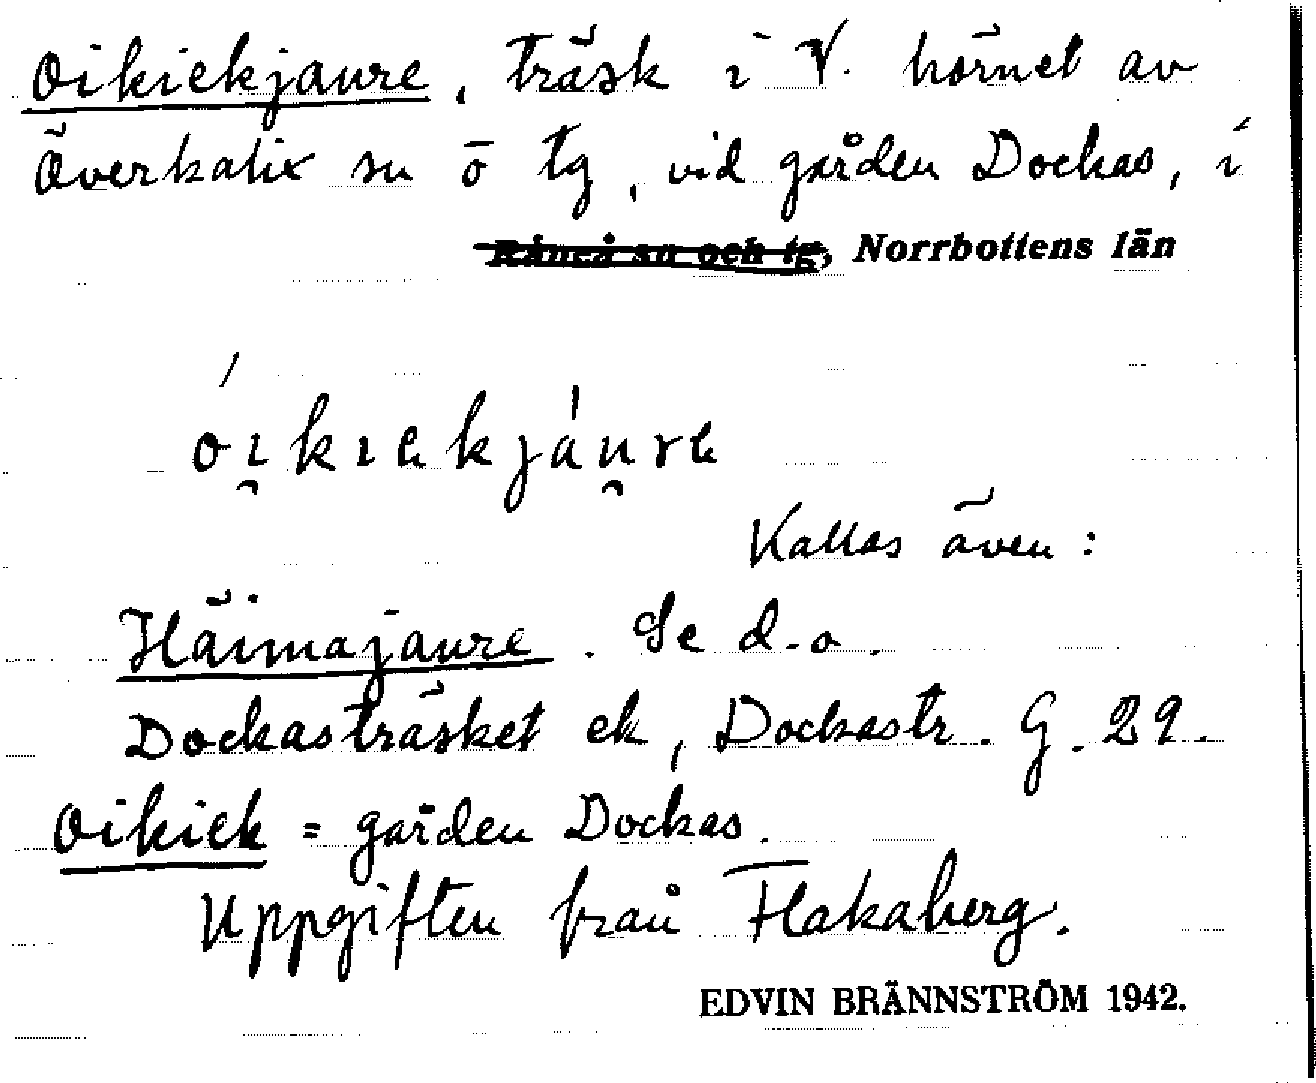 Oikiekjaure, träsk i V. hörnet av
Överkalix sn o tg, vid gården Dockas, i
Råneå sn och tg, Norrbottens län
óikiekjáure
Kallas även:
Häimajaure. Se d.o.
Dockasträsket ek, Dockastr. G. 29.
Oikiek = gården Dockas.
Uppgiften från Flakaberg.
EDVIN BRÄNNSTRÖM 1942.